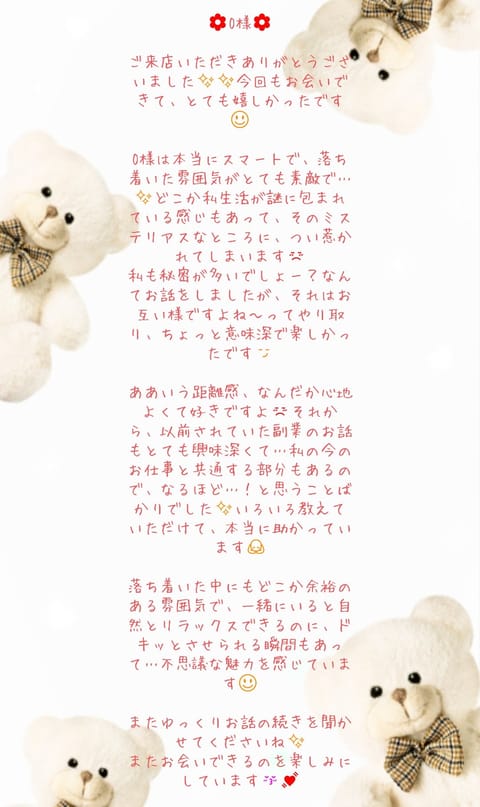 O様
ご来店いただきありがとうござ
いました✨✨今回もお会いで
きて、とても嬉しかったです
😊
O様は本当にスマートで、落ち
着いた雰囲気がとても素敵で…
✨どこか私生活が謎に包まれ
ている感じもあって、そのミス
テリアスなところに、つい惹か
れてしまいます
私も秘密が多いでしょー?なん
てお話をしましたが、それはお
互い様ですよね〜ってやり取
り、ちょっと意味深で楽しかっ
たです
ああいう距離感、なんだか心地
よくて好きですよ それか
ら、以前されていた副業のお話
もとても興味深くて…私の今の
お仕事と共通する部分もあるの
で、なるほど…!と思うことば
かりでした✨いろいろ教えて
いただけて、本当に助かってい
ます
落ち着いた中にもどこか余裕の
ある雰囲気で、一緒にいると自
然とリラックスできるのに、ド
キッとさせられる瞬間もあっ
て…不思議な魅力を感じていま
す😊
またゆっくりお話の続きを聞か
せてくださいね✨
またお会いできるのを楽しみに
しています💘